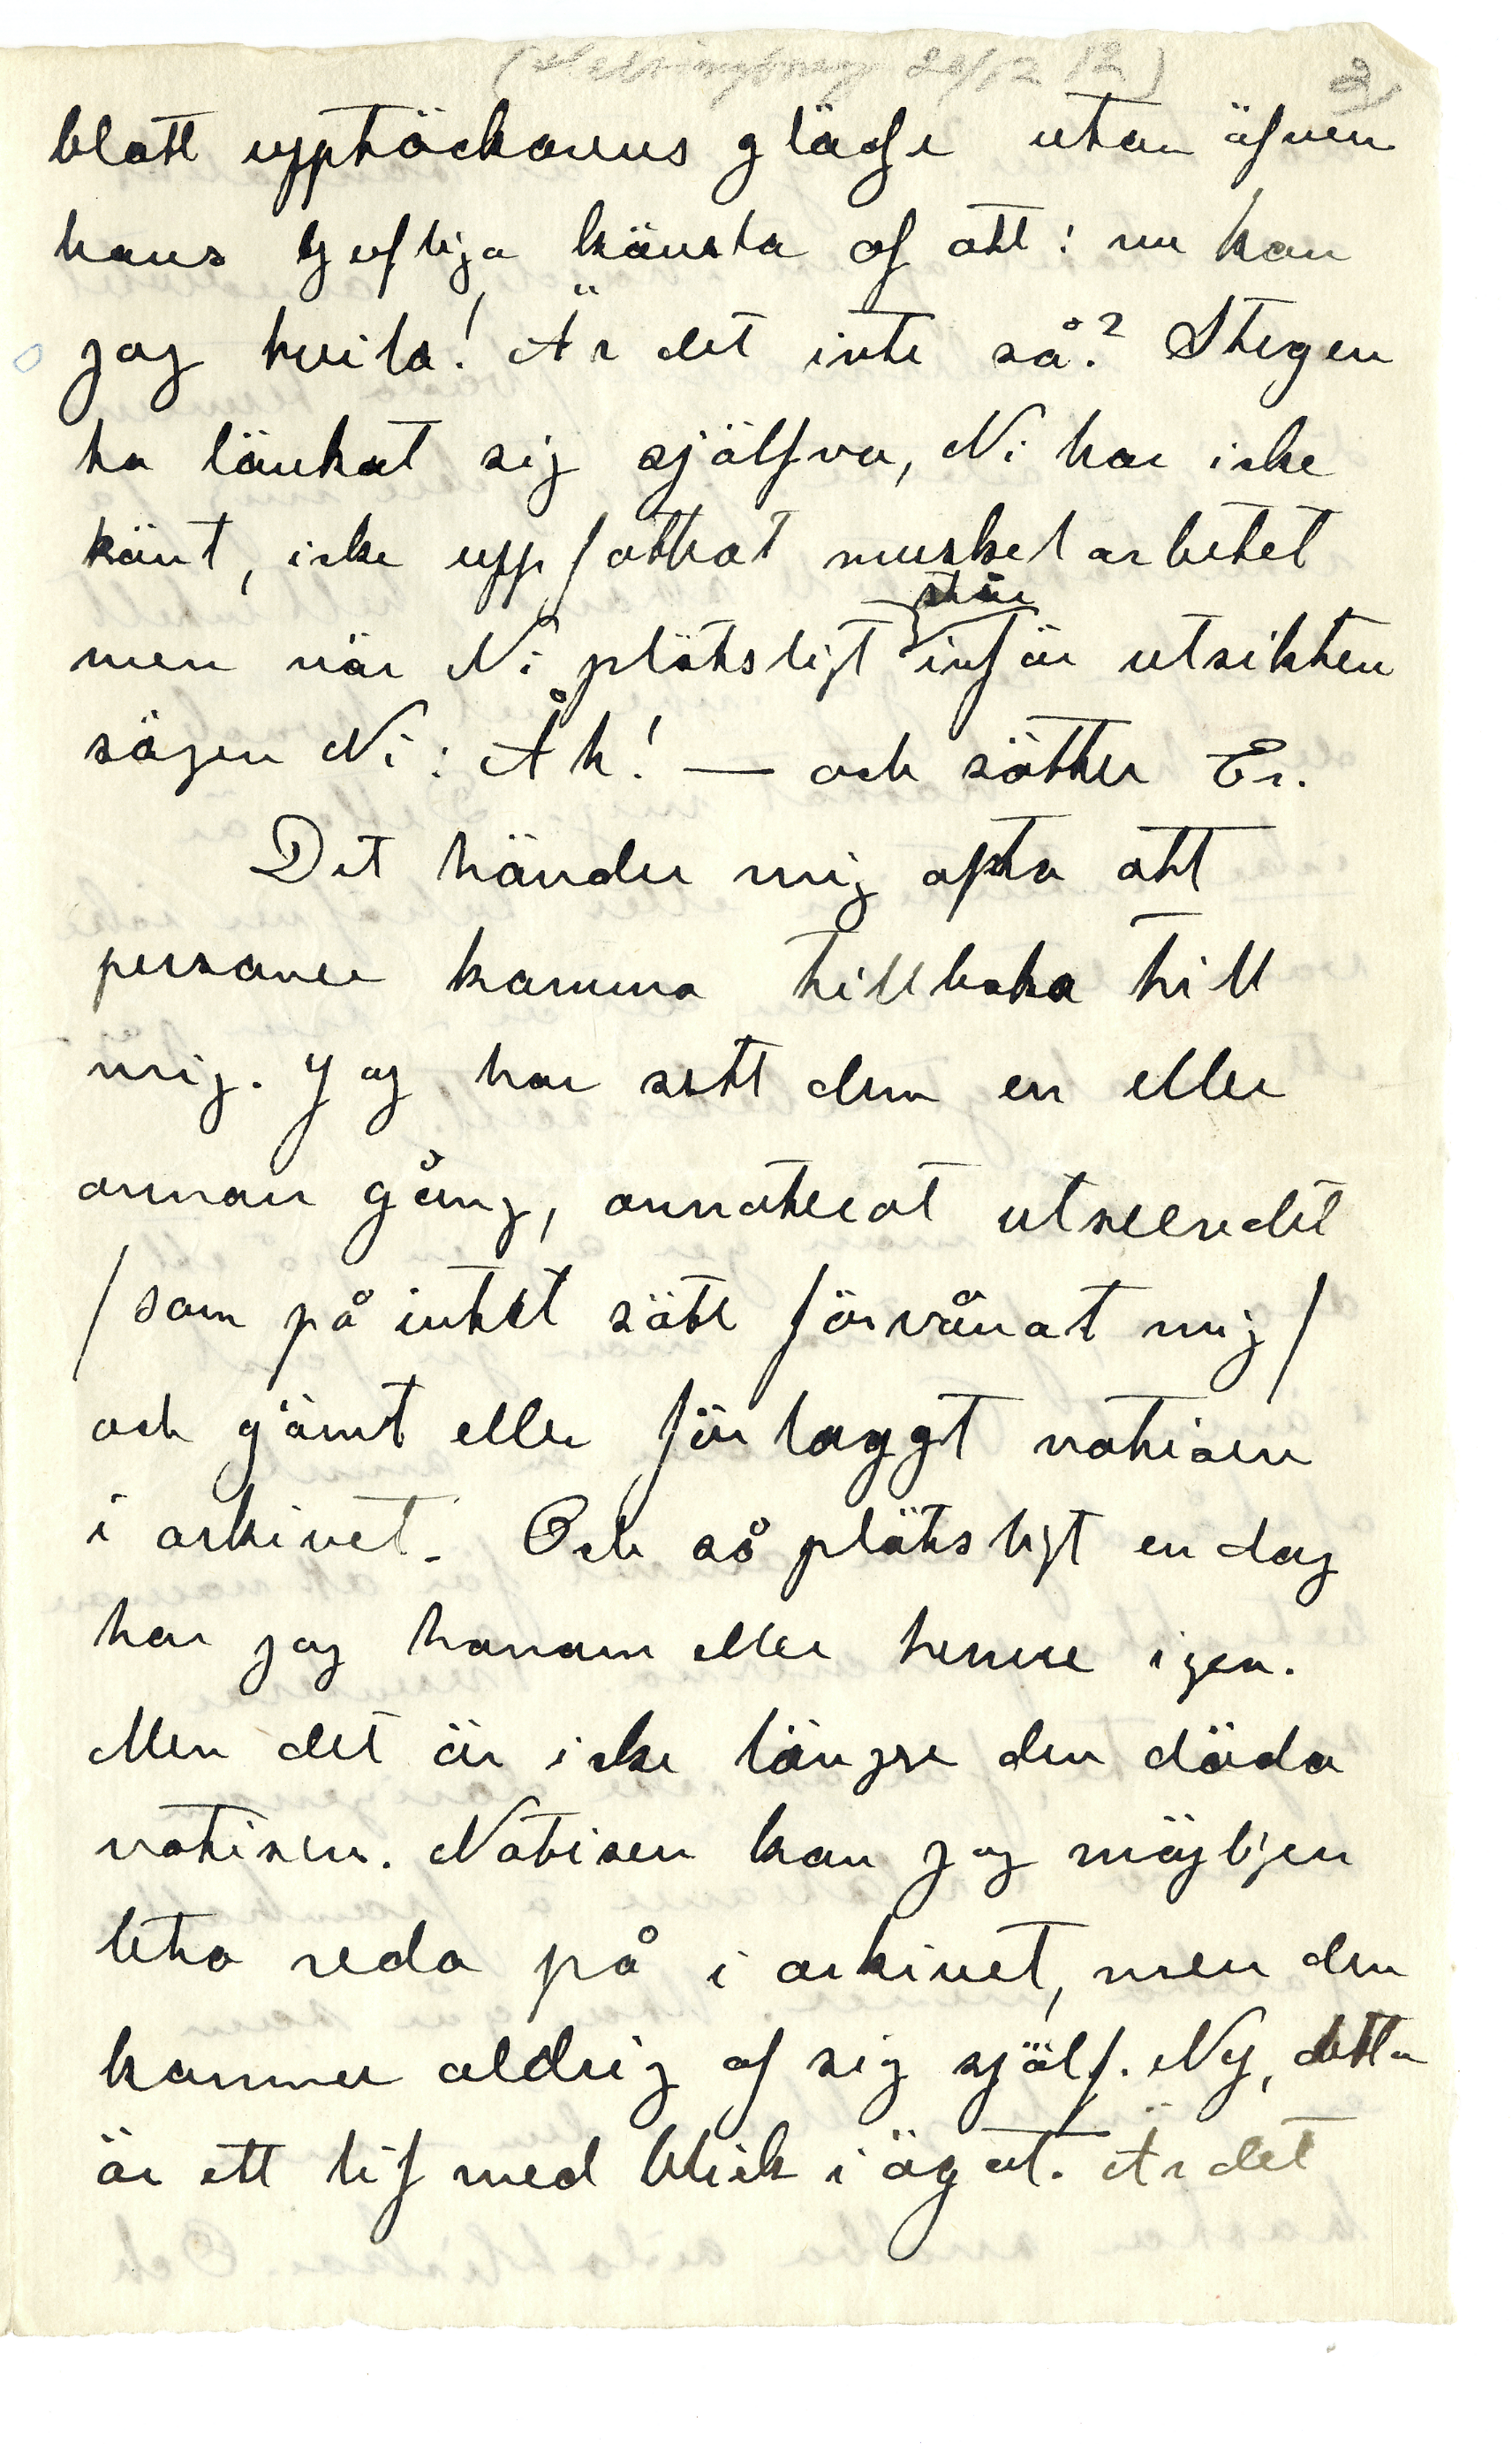 (Helsingborg 20/12 12) 2)
blott upptäckarens glädje utan äfven
hans ljufliga känsla af att: nu kan
jag hvila! Är det inte så? Stegen
ha länkat sig själfva, Ni har icke
känt, icke uppfattat muskelarbetet
står
men när Ni plötsligt inför utsikten
säger Ni: Åh! — och sätter Er.
Det händer mig ofta att
personer komma tillbaka till
mig. Jag har sett dem en eller
annan gång, annoterat utseendet
/som på intet sätt förvånat mig/
och gömt eller förlaggt notisen
i arkivet. Och så plötsligt en dag
har jag honom eller henne igen.
Men det är icke längre den döda
notisen. Notisen kan jag möjligen
leta reda på i arkivet, men den
kommer aldrig af sig själf. Nej, detta
är ett lif med blick i ögat. Är det